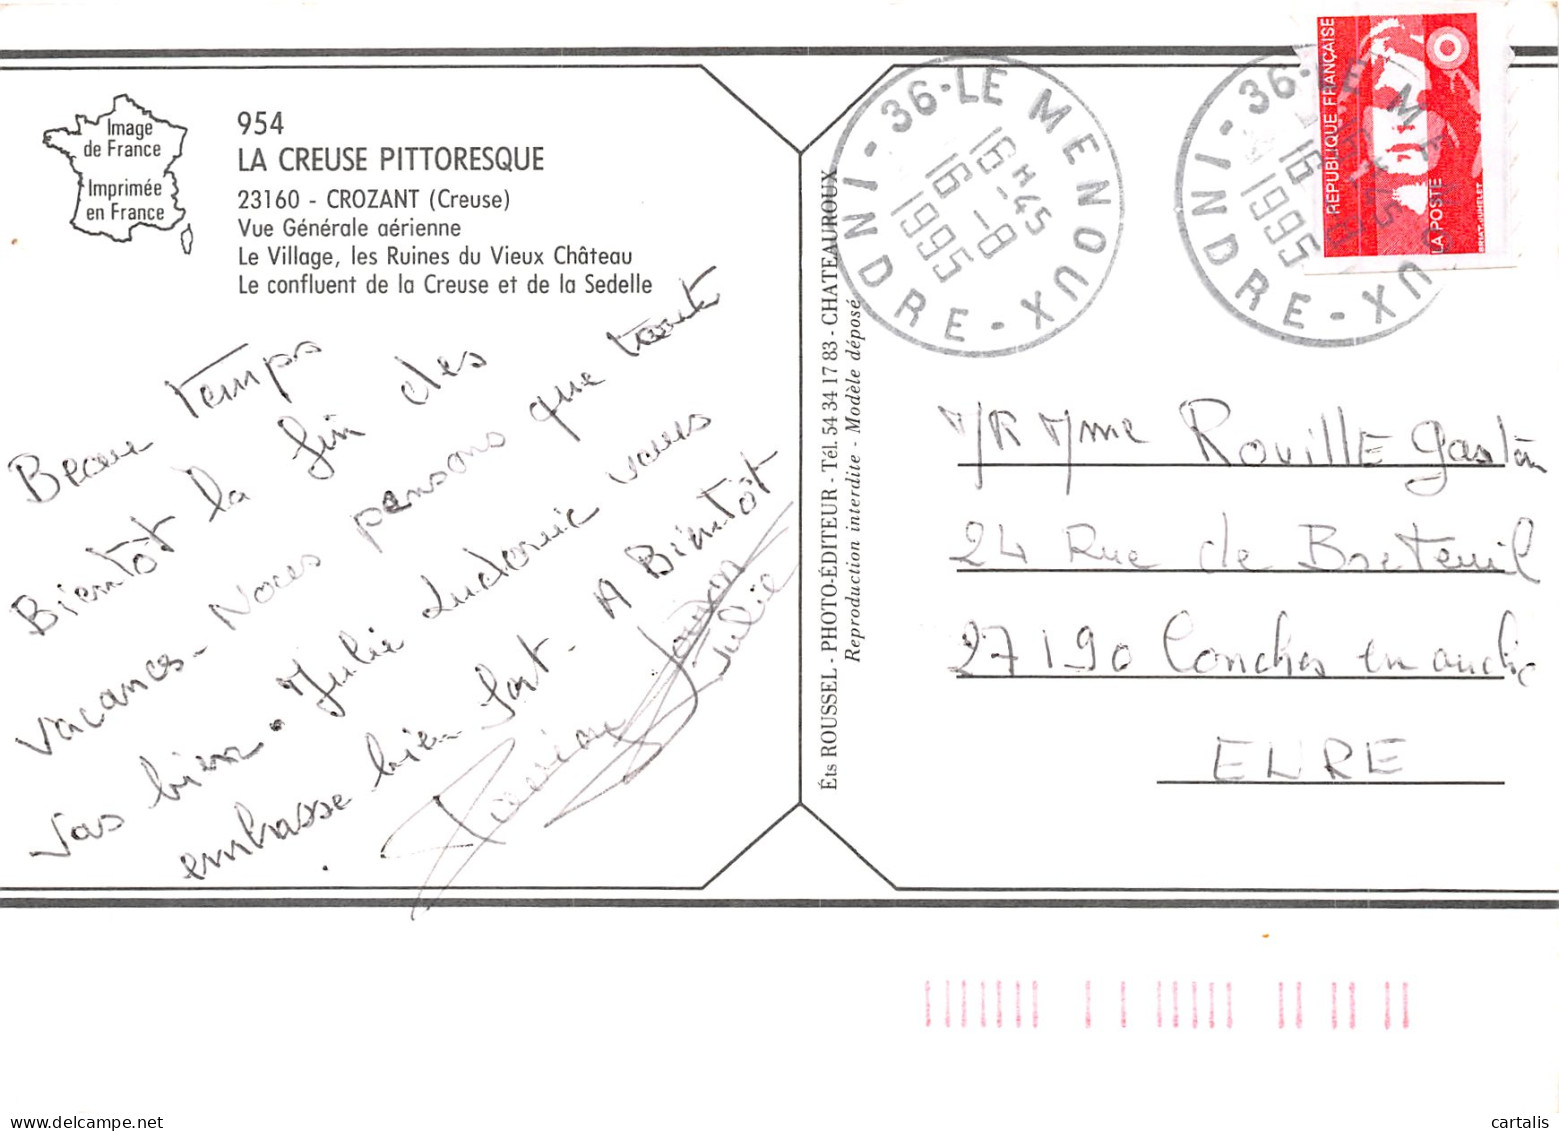 Image
de France
Imprimée
en France
954
LA CREUSE PITTORESQUE
23160 - CROZANT (Creuse)
Vue Générale aérienne
Le Village, les Ruines du Vieux Château
Le confluent de la Creuse et de la Sedelle
Beau temps
Bientôt la fin des
vacances - Nous pensons que tout
vas bien. Julie Ludovic vous
embrasse bien fort - A Bientôt
Julie
Éts ROUSSEL - PHOTO-ÉDITEUR - Tél. 54 34 17 83 - CHATEAUROUX
Reproduction interdite - Modèle déposé
36-LE MENOUX
16H45
16-8
1995
INDRE
36-LE MENOUX
16H45
16-8
1995
INDRE
RÉPUBLIQUE FRANÇAISE
LA POSTE
BRIAT-JUMELET
MR Mme Rouille Gaston
24 Rue de Breteuil
27190 Conches en ouche
EURE
cartalis